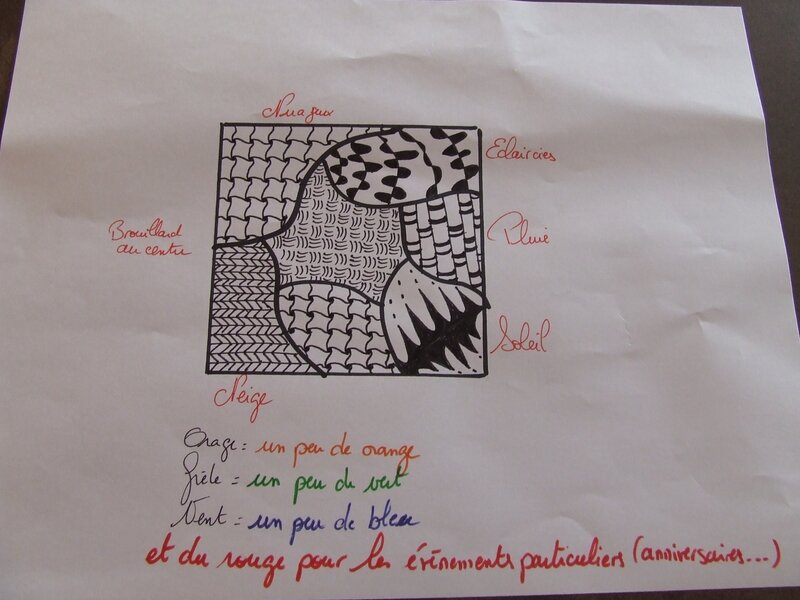 Nuageux
Eclaircies
Brouillard
au centre
Pluie
Soleil
Neige
Orage = un peu de orange
Grêle = un peu de vert
Vent = un peu de bleu
et du rouge pour les évènements particuliers (anniversaires...)